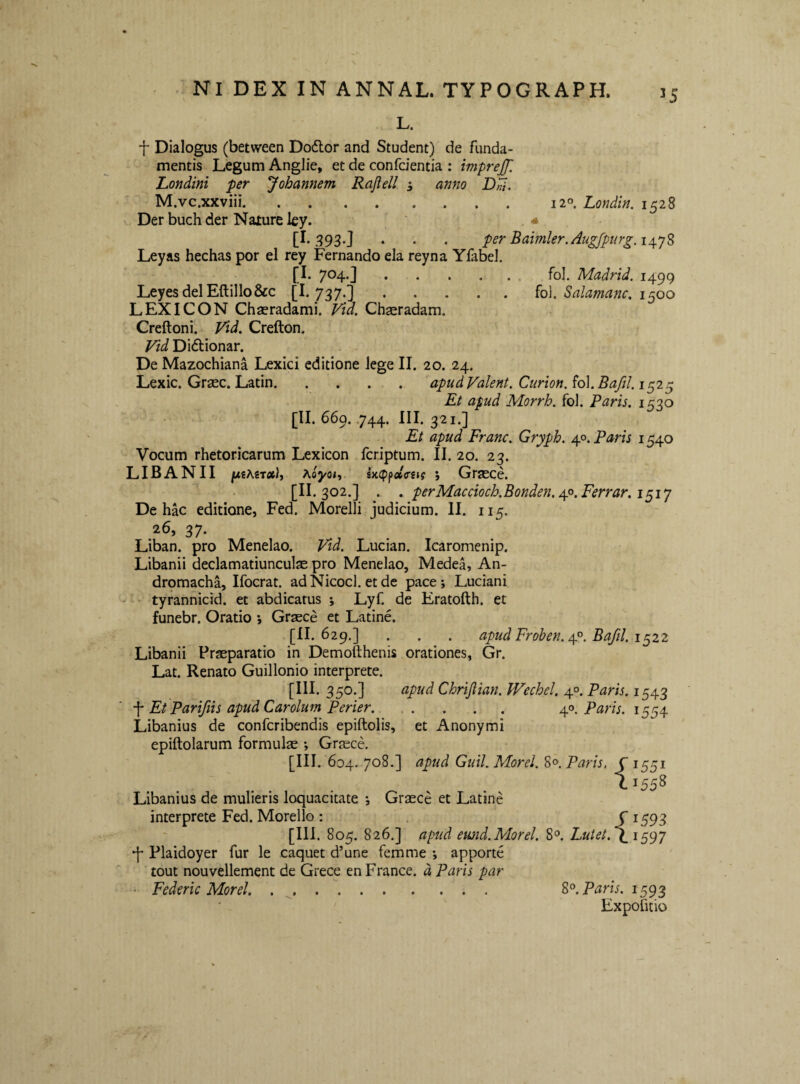 NI DEX IN ANNAL. TYPOGRAPH. 15
L.
† Dialogus (between Doctor and Student) de funda-
mentis Legum Anglie, et de conſcientia : impreſſ.
Londini per Johannem Raſtell ; anno Dm̄.
M.vc.xxviii. . . . . . . . . 12º. Londin. 1528
Der buch der Nature ley.
[I. 393.] . . . per Baimler. Augſpurg. 1478
Leyas hechas por el rey Fernando ela reyna Yſabel.
[I. 704.] . . . . . fol. Madrid. 1499
Leyes del Eſtillo &c [I. 737.] . . . . . fol. Salamanc. 1500
LEXICON Chæradami. Vid. Chæradam.
Creſtoni. Vid. Creſton.
Vid Dictionar.
De Mazochianâ Lexici editione lege II. 20. 24.
Lexic. Græc. Latin. . . . . apud Valent. Curion. fol. Baſil. 1525
Et apud Morrh. fol. Paris. 1530
[II. 669. 744. III. 321.]
Et apud Franc. Gryph. 4º. Paris 1540
Vocum rhetoricarum Lexicon ſcriptum. II. 20. 23.
LIBANII μελεταὶ, λόγοι, ἐκφράσεις ; Græcè.
[II. 302.] . . per Maccioch. Bonden. 4º. Ferrar. 1517
De hâc editione, Fed. Morelli judicium. II. 115.
26, 37.
Liban. pro Menelao. Vid. Lucian. Icaromenip.
Libanii declamatiunculæ pro Menelao, Medeâ, An-
dromachâ, Iſocrat. ad Nicocl. et de pace ; Luciani
tyrannicid. et abdicatus ; Lyſ. de Eratoſth. et
funebr. Oratio ; Græcè et Latiné.
[II. 629.] . . . apud Froben. 4º. Baſil. 1522
Libanii Præparatio in Demoſthenis orationes, Gr.
Lat. Renato Guillonio interprete.
[III. 350.] apud Chriſtian. Wechel. 4º. Paris. 1543
† Et Pariſiis apud Carolum Perier. . . . . . 4º. Paris. 1554
Libanius de conſcribendis epiſtolis, et Anonymi
epiſtolarum formulæ ; Græcè.
[III. 604. 708.] apud Guil. Morel. 8º. Paris, { 1551
1558
Libanius de mulieris loquacitate ; Græcè et Latinè
interprete Fed. Morello : { 1593
[III. 805. 826.] apud eund. Morel. 8º. Lutet. 1597
† Plaidoyer ſur le caquet d’une femme ; apporté
tout nouvellement de Grece en France. à Paris par
Federic Morel. . . . . . . . . . . 8º. Paris. 1593
Expoſitio